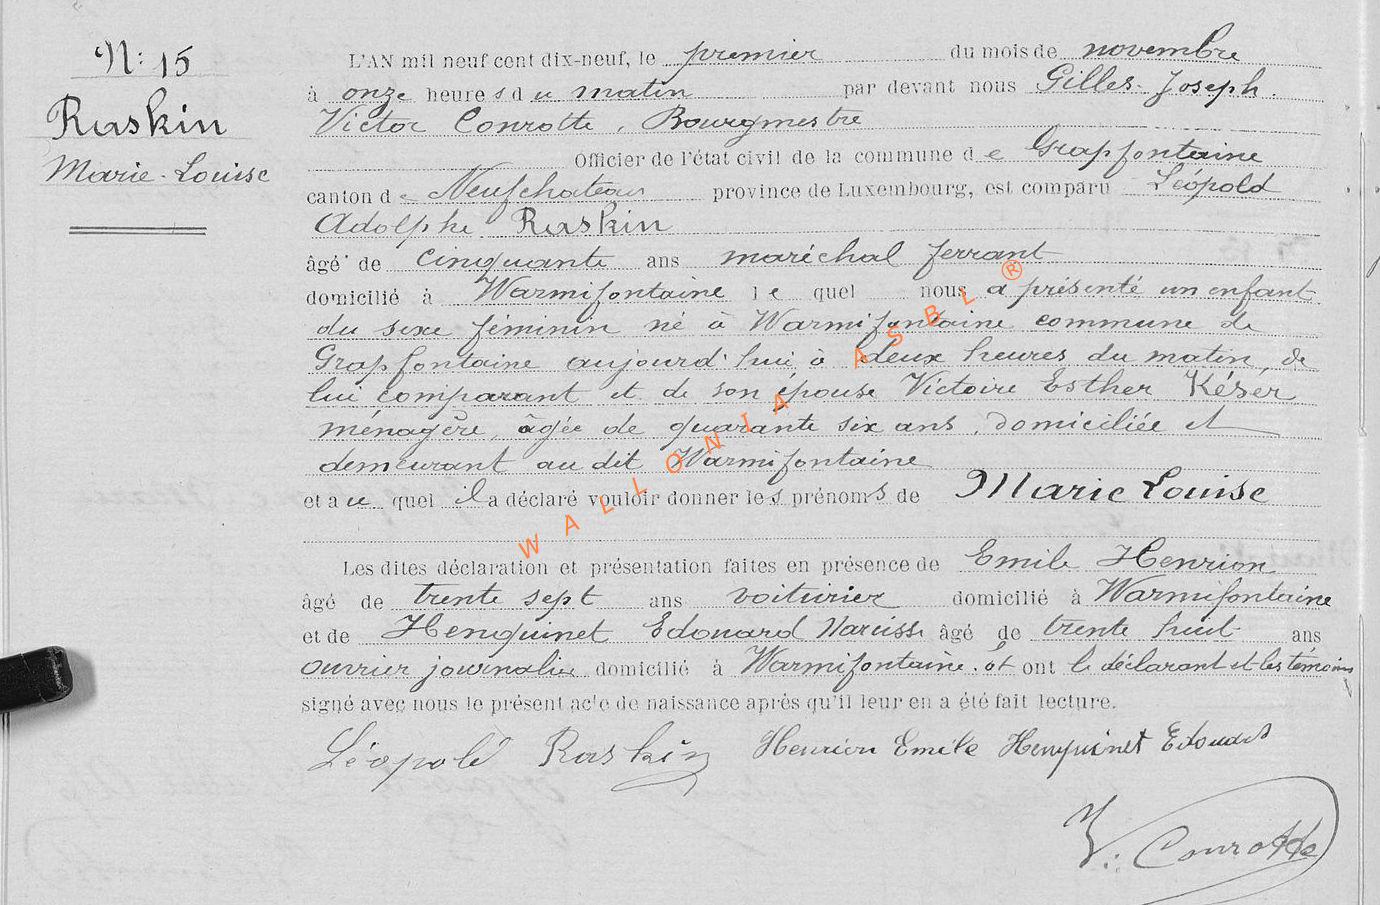 N: 15
Raskin
Marie-Louise
L'AN mil neuf cent dix-neuf, le premier du mois de novembre
à onze heures du matin par devant nous Gilles-Joseph.
Victor Conrotte, Bourgmestre
Officier de l'état civil de la commune de Grapfontaine
canton de Neufchateau province de Luxembourg, est comparu Léopold
Adolphe Raskin
âgé de cinquante ans maréchal ferrant
domicilié à Warmifontaine lequel nous a présenté un enfant
du sexe féminin né à Warmifontaine commune de
Grapfontaine aujourd'hui à deux heures du matin, de
lui comparant et de son épouse Victoire Esther Késer
ménagère, âgée de quarante six ans, domiciliée et
demeurant au dit Warmifontaine
et auquel il a déclaré vouloir donner les prénoms de Marie Louise
Les dites déclaration et présentation faites en présence de Emile Henrion
âgé de trente sept ans voiturier domicilié à Warmifontaine
et de Henquinet Edouard Narcisse âgé de trente huit ans
ouvrier journalier domicilié à Warmifontaine. et ont le déclarant et les témoins
signé avec nous le présent acte de naissance après qu'il leur en a été fait lecture.
Léopold Raskin Henrion Emile Henquinet Edouard
V. Conrotte
WALLONIA ASBL ®